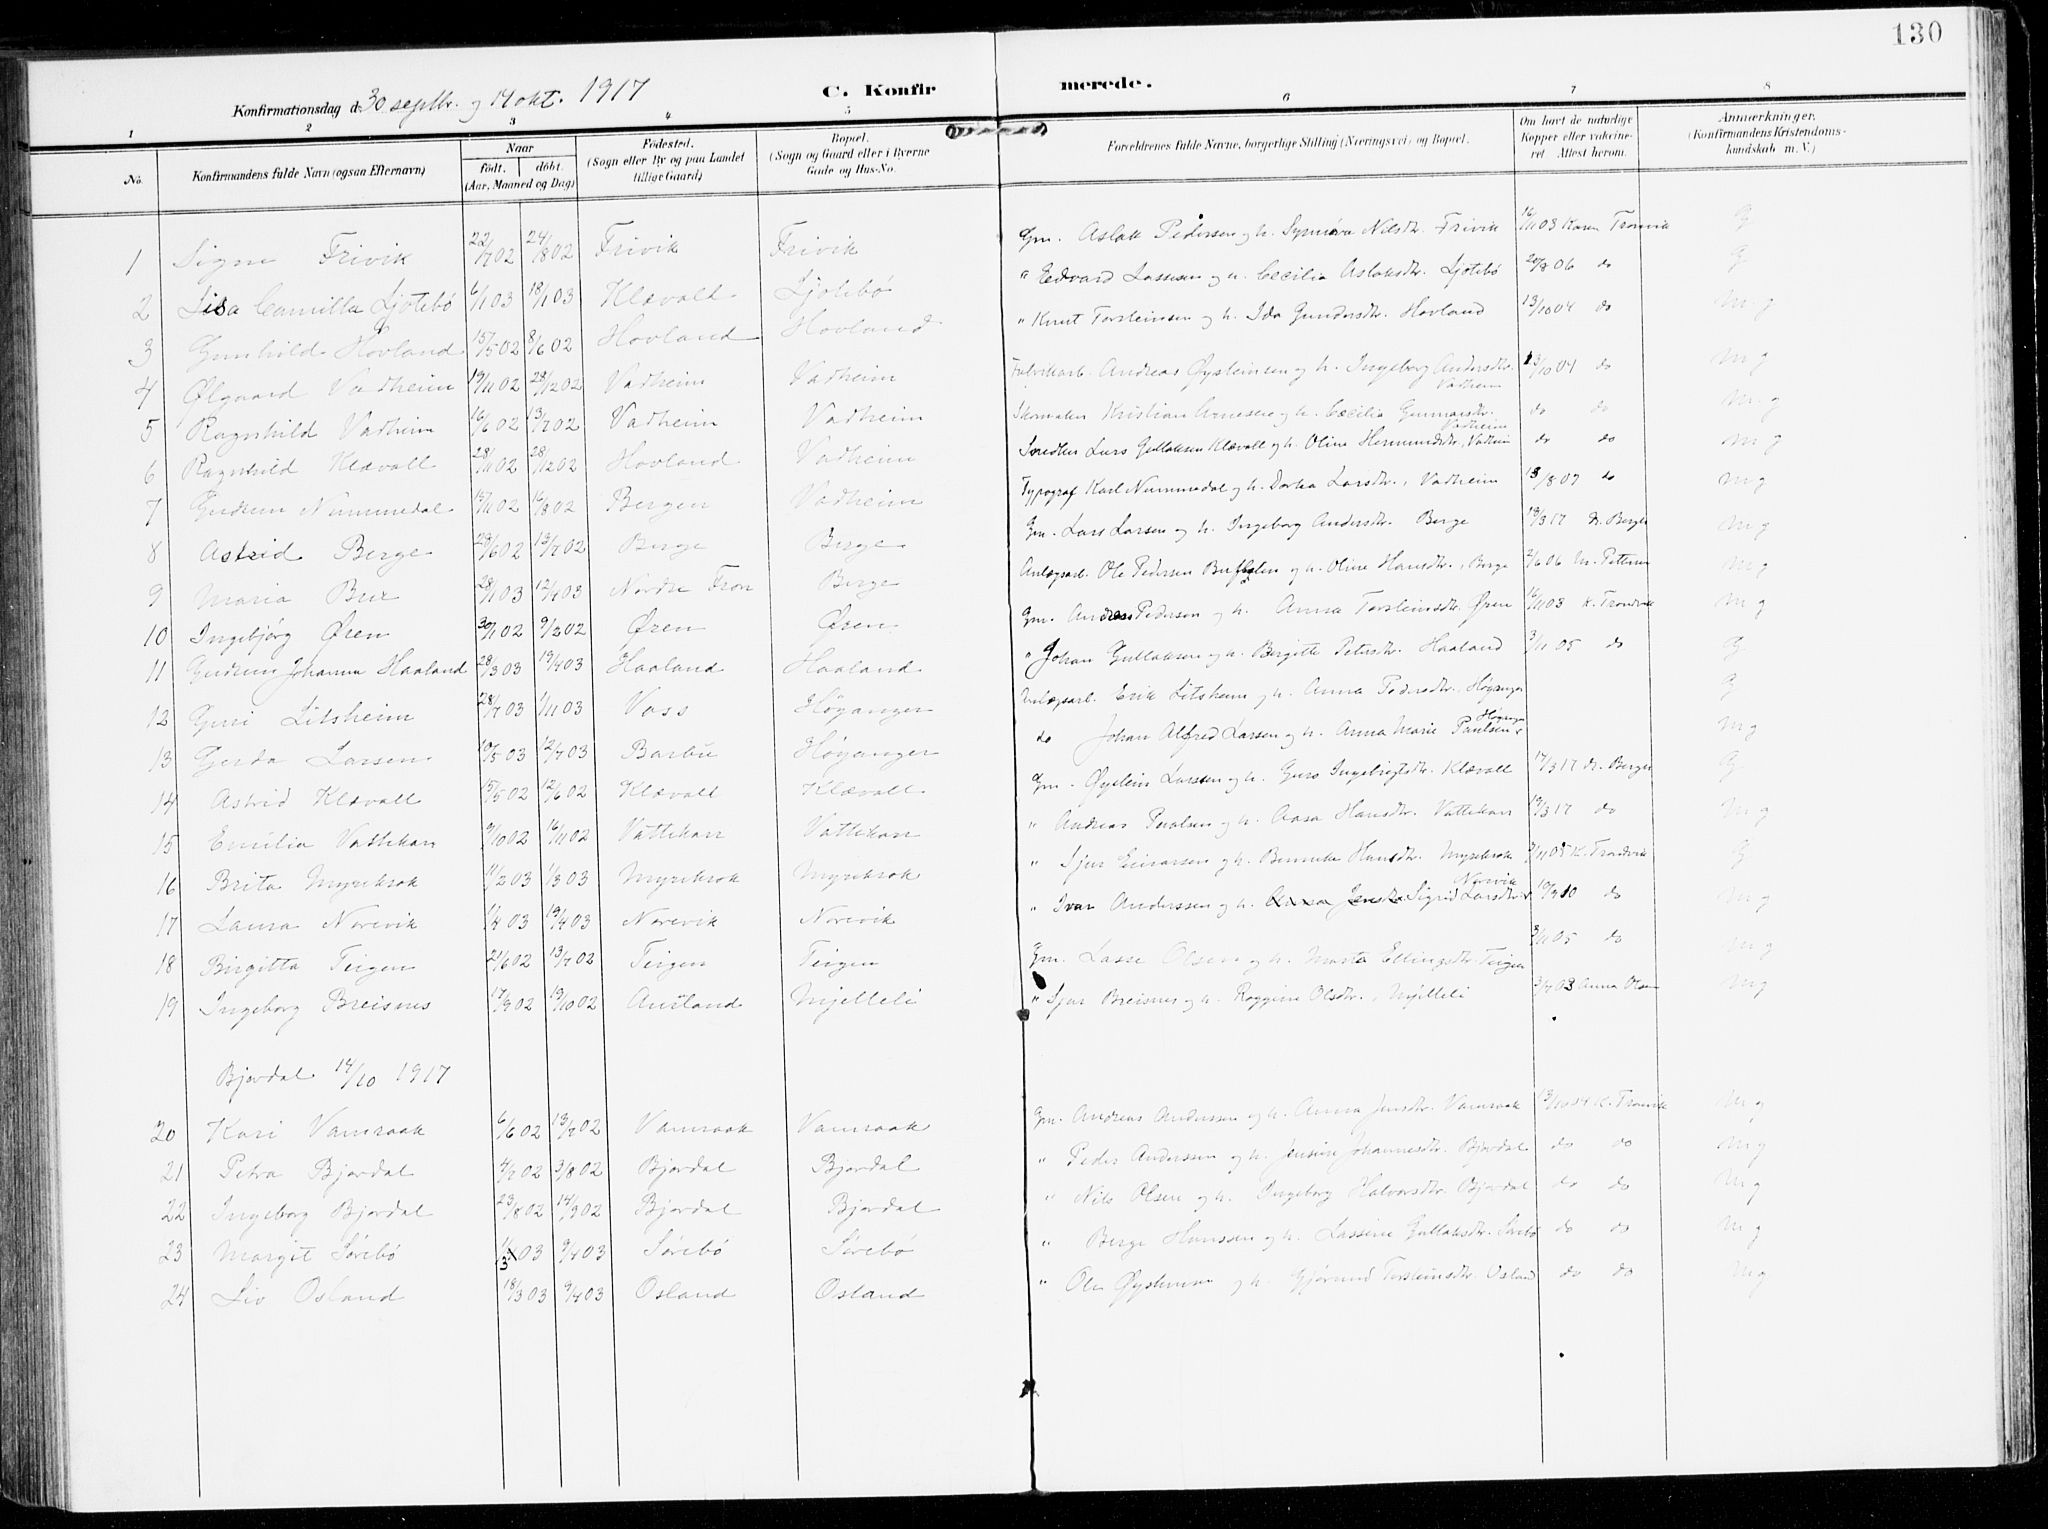 130
Konfirmationsdag d. 30 septbr. og 14 okt. 1917 C. Konfirmerede.
1 2 3 4 5 6 7 8
No. Konfirmandens fulde Navn (ogsaa Efternavn) Naar födt. döbt. (Aar, Maaned og Dag) Födested. (Sogn eller By og paa Landet tillige Gaard) Bopæl. (Sogn og Gaard eller i Byerne Gade og Hus-No. Forældrenes fulde Navne, borgerlige Stilling (Næringsvei) og Bopæl. Om havt de naturlige Kopper eller vakcineret. Attest herom. Anmærkninger. (Konfirmandens Kristendomskundskab m. V.)
1 Signe Frivik 22/7 02 24/8 02 Frivik Frivik Gm. Aslak Pedersen og h. Synnöva Nilsdtr. Frivik 16/11 03 Karen Tronvik G
2 Lisa Camilla Ljotebö 6/1 03 18/1 03 Klævoll Ljotebö " Edvard Lassesen og h. Cecilia Aslaksdtr. Ljotebö 20/8 06 do G
3 Gunhild Hovland 15/5 02 8/6 02 Hovland Hovland " Knut Torsteinsen og h. Ida Gundersdtr. Hovland 13/10 04 do M.g
4 Ølgaard Vadheim 19/11 02 28/12 02 Vadheim Vadheim Fabrikarb. Andreas Øysteinsen og h. Ingeborg Andersdtr. Vadheim 13/10 04 do M g
5 Ragnhild Vadheim 16/6 02 13/7 02 Vadheim Vadheim Skomaker Kristian Arnesen og h. Cecilia Gunnarsdtr. Vadheim do do M.g
6 Ragnhild Klævoll 28/11 02 28/12 02 Hovland Vadheim Snedker Lars Gullaksen Klævoll og h. Oline Hermundsdtr. Vadheim do do M g
7 Gudrun Nummedal 02 02 Bergen Vadheim Typograf Karl Nummedal og h. Dorthea Larsdtr., Vadheim 13/8 07 do M g
8 Astrid Berge 29/6 02 13/7 02 Berge Berge Gm. Lars Larsen og h. Ingeborg Andersdtr. Berge 19/3 17 Berger M g
9 Maria Bue 28/1 03 12/4 03 Nordre Fron Berge Anlægsarb. Ole Pedersen og h. Oline Hansdtr., Berge 2/6 06 M. Pettersen M g
10 Ingebjörg Øren 30/1 02 9/2 02 Øren Øren Gm. Andreas Pedersen og h. Anna Torsteinsdtr. Øren 16/11 03 K. Tronvik M g
11 Gudrun Johanna Haaland 28/3 03 19/4 03 Haaland Haaland " Johan Gullaksen og h. Bergitte Petersdtr. Haaland 3/11 05 do G
12 Guri Litsheim 28/7 03 1/11 03 Voss Höyanger Anlægsarb. Erik Litsheim og h. Anna Pedersdtr. Höyanger G
13 Gerda Larsen 10/5 03 12/7 03 Barbu Höyanger do Johan Alfred Larsen og h. Anna Marie Paulsen, Höyanger M g
14 Astrid Klævoll 15/5 02 12/6 02 Klævoll Klævoll Gm. Øystein Larsen og h. Guro Ingebrigtsdtr. Klævoll 17/3 17 Berger G
15 Emilia Vattekar 9/10 02 16/11 02 Vattekar Vattekar " Andreas Paulsen og h. Aasa Hansdtr. Vattekar 19/3 17 do M g
16 Brita Myrekrok 11/2 03 1/3 03 Myrekrok Myrekrok " Sjur Einarsen og h. Hansdtr. Myrekrok 3/11 05 K. Tronvik G
17 Laura Norevik 1/4 03 19/4 03 Norevik Norevik " Ivar Anderssen og h. Sigrid Larsdtr. Norevik 10 do M g
18 Birgitta Teigen 21/6 02 13/7 02 Teigen Teigen Gm. Lasse Olsen og h. Marta Ellingsdtr. Teigen 3/11 05 do M g
19 Ingeborg Breisnes 17/9 02 19/10 02 Austland Mjelleli " Sjur Breisnes og h. Olsdtr., Mjelleli 3/7 03 Anna Olsen M g
Bjordal 14/10 1917
20 Kari Vamraak 6/6 02 13/7 02 Vamraak Vamraak Gm. Andreas Anderssen og h. Anna Jensdtr. Vamraak 13/10 04 K. Tronvik M g
21 Petra Bjordal 4/7 02 3/8 02 Bjordal Bjordal " Peder Anderssen og h. Jensine Johannesdtr. Bjordal do do M g
22 Ingeborg Bjordal 23/8 02 14/9 02 Bjordal Bjordal " Nils Olsen og h. Ingeborg Halvorsdtr. Bjordal do do M g
23 Margit Sörebö 03 9/4 03 Sörebö Sörebö " Berge Hanssen og h. Lassine Gullaksdtr. Sörebö do do M g
24 Liv Osland 18/3 03 9/4 03 Osland Osland " Ole Øysteinsen og h. Gjörund Torsteinsdtr. Osland do do M g